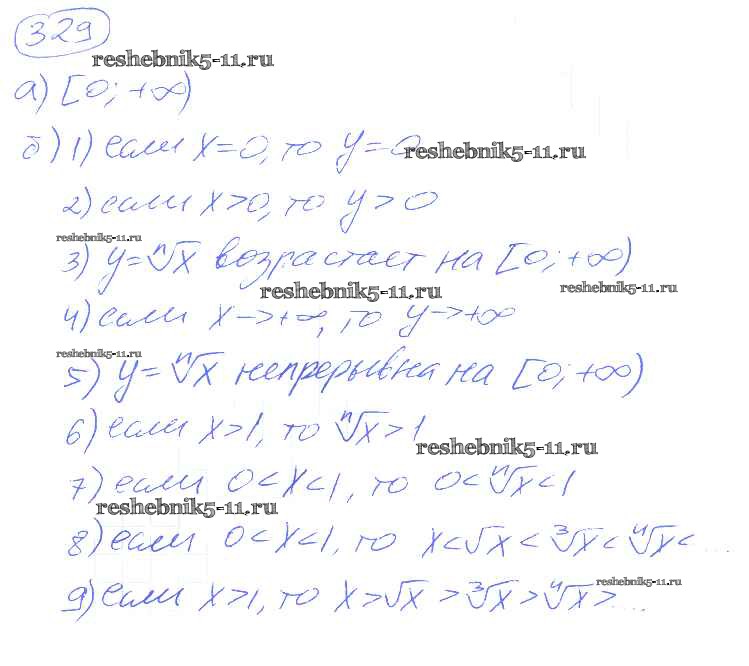 329
reshebnik5-11.ru
а) [0; +∞)
б) 1) если x=0, то y=0
reshebnik5-11.ru
2) если x>0, то y>0
reshebnik5-11.ru
3) y=ⁿ√x возрастает на [0; +∞)
reshebnik5-11.ru
reshebnik5-11.ru
4) если x→+∞, то y→+∞
reshebnik5-11.ru
5) y=ⁿ√x непрерывна на [0; +∞)
6) если x>1, то ⁿ√x>1
reshebnik5-11.ru
7) если 0<x<1, то 0<ⁿ√x<1
reshebnik5-11.ru
8) если 0<x<1, то x<√x<³√x<⁴√x<...
reshebnik5-11.ru
9) если x>1, то x>√x>³√x>⁴√x>...